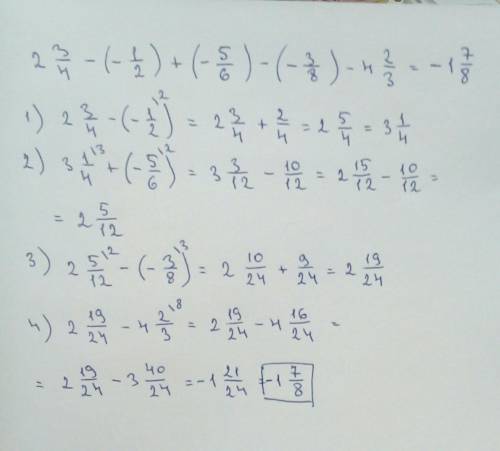 2 3/4 - (- 1/2) + (- 5/6) - (- 3/8) - 4 2/3 = -1 7/8
1) 2 3/4 - (- 1/2)\2 = 2 3/4 + 2/4 = 2 5/4 = 3 1/4
2) 3 1/4\3 + (- 5/6)\2 = 3 3/12 - 10/12 = 2 15/12 - 10/12 =
= 2 5/12
3) 2 5/12\2 - (- 3/8)\3 = 2 10/24 + 9/24 = 2 19/24
4) 2 19/24 - 4 2/3\8 = 2 19/24 - 4 16/24 =
= 2 19/24 - 3 40/24 = -1 21/24 = -1 7/8